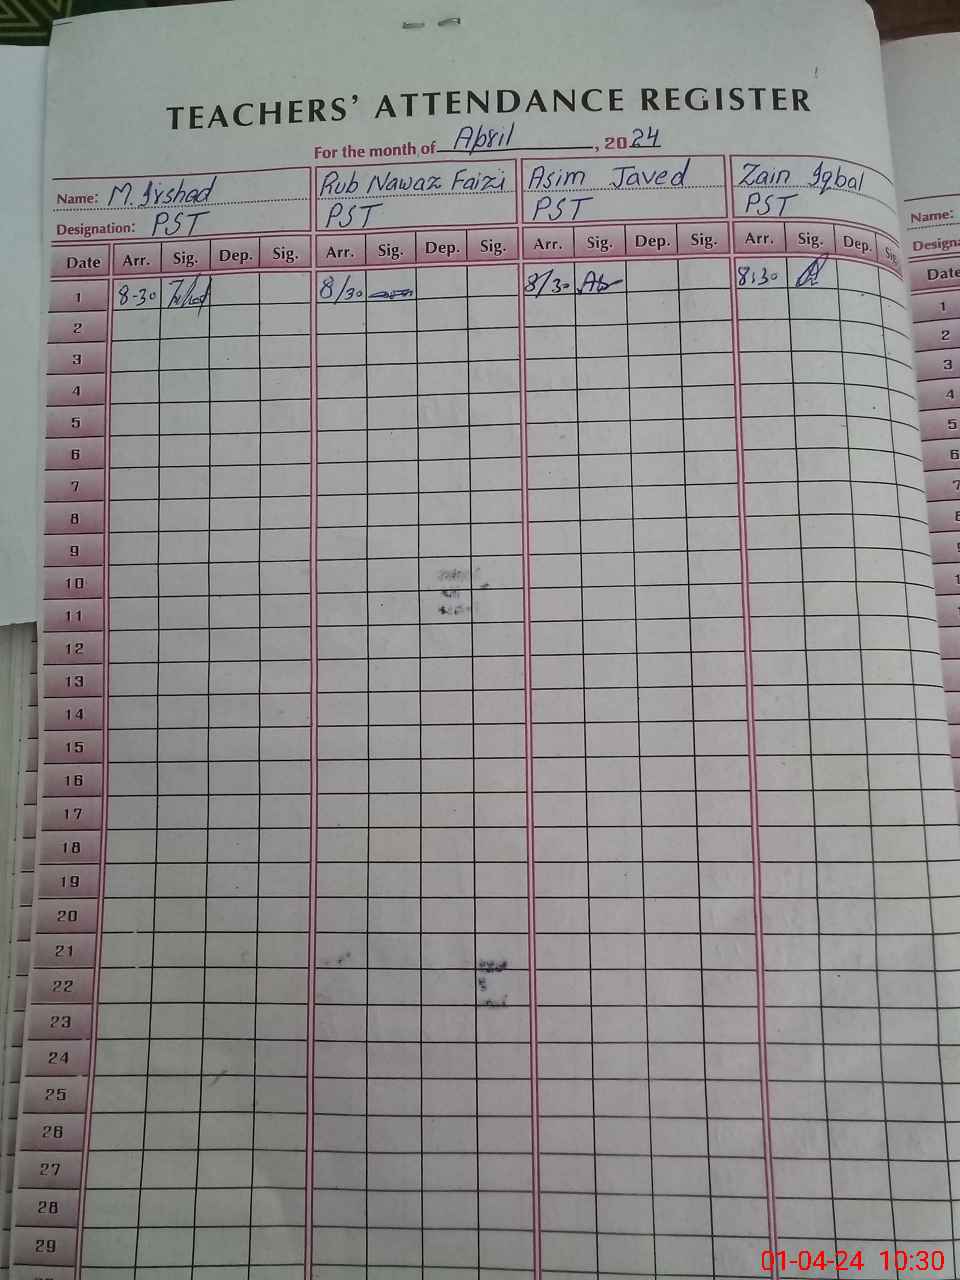 TEACHERS' ATTENDANCE REGISTER
For the month of April, 2024
Name: M. Irshad Rub Nawaz Faizi Asim Javed Zain Iqbal
Designation: PST PST PST PST
Date Arr. Sig. Dep. Sig. Arr. Sig. Dep. Sig. Arr. Sig. Dep. Sig. Arr. Sig. Dep. Sig.
1 8-30 8/30 8/30 8:30
2
3
4
5
6
7
8
9
10
11
12
13
14
15
16
17
18
19
20
21
22
23
24
25
26
27
28
29
Name:
Date
1
2
3
4
5
6
7
01-04-24 10:30